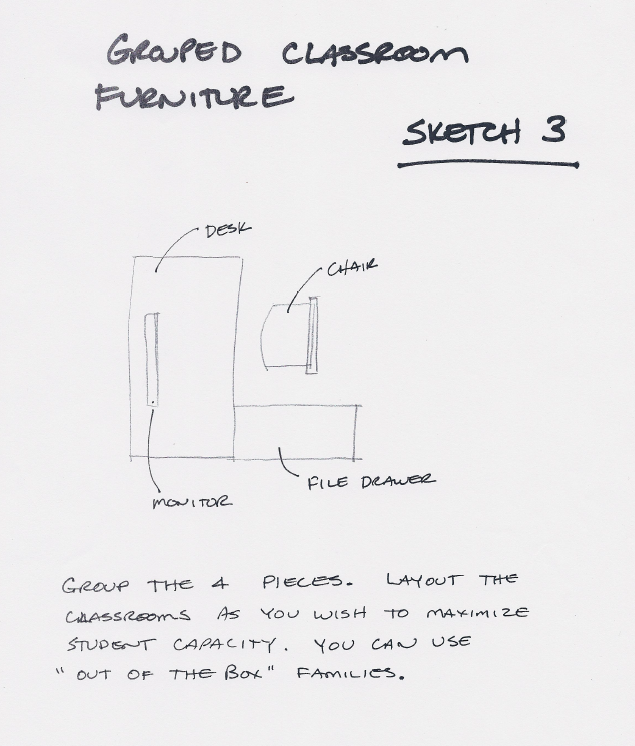 GROUPED CLASSROOM
FURNITURE
SKETCH 3
DESK
CHAIR
FILE DRAWER
MONITOR
GROUP THE 4 PIECES. LAYOUT THE
CLASSROOMS AS YOU WISH TO MAXIMIZE
STUDENT CAPACITY. YOU CAN USE
"OUT OF THE BOX" FAMILIES.